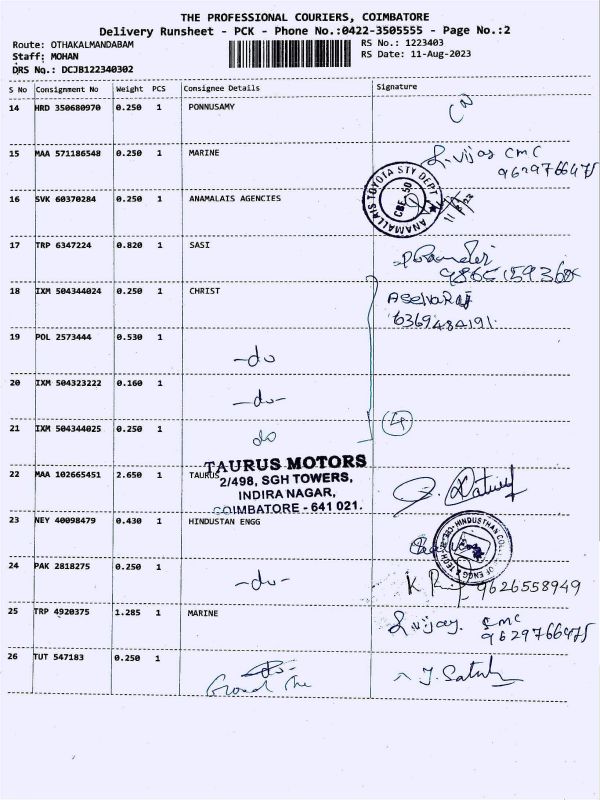 THE PROFESSIONAL COURIERS, COIMBATORE
Delivery Runsheet - PCK - Phone No.:0422-3505555 - Page No.:2
Route: OTHAKALMANDABAM RS No.: 1223403
Staff: MOHAN RS Date: 11-Aug-2023
DRS No.: DCJB122340302
S No Consignment No Weight PCS Consignee Details Signature
14 HRD 350680970 0.250 1 PONNUSAMY
15 MAA 571186548 0.250 1 MARINE L.vijay CMC
9629766475
16 SVK 60370284 0.250 1 ANAMALAIS AGENCIES
ANAMALLAIS TOYOTA STY DEPT
CBE. 50
17 TRP 6347224 0.820 1 SASI
18 IXM 504344024 0.250 1 CHRIST
6369484191
19 POL 2573444 0.530 1
-do
20 IXM 504323222 0.160 1
-do-
21 IXM 504344025 0.250 1 4
do
22 MAA 102665451 2.650 1 TAURUS
TAURUS MOTORS
2/498, SGH TOWERS,
INDIRA NAGAR,
COIMBATORE - 641 021.
23 NEY 40098479 0.430 1 HINDUSTAN ENGG
24 PAK 2818275 0.250 1
-do- 9626558949
25 TRP 4920375 1.285 1 MARINE L.vijay. CMC
9629766475
26 TUT 547183 0.250 1